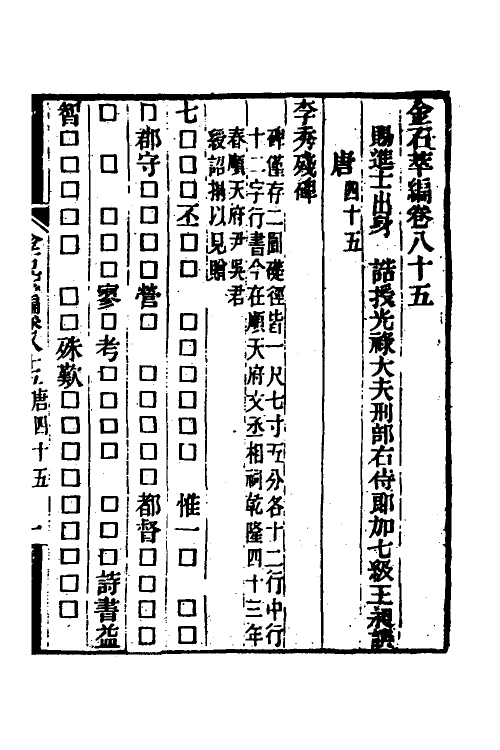 金石萃編卷八十五
賜進士出身 誥授光祿大夫刑部右侍郎加七級王昶譔
唐四十五
李秀殘碑
碑僅存二圓礎徑皆一尺七寸五分各十二行中行
十二字行書今在順天府文丞相祠乾隆四十三年
春順天府尹吳君
綬詔搨以見贈
七□□□丕□□ □□□□□□ 惟一□ □□
□郡守□□□□營□ □□□□□都督□□□□
□ □ □□□寥□考□□□□ □□□詩書益
智□□□□□ □□殊歎□□□□□□□□□
金石萃編卷八十五唐四十五 一